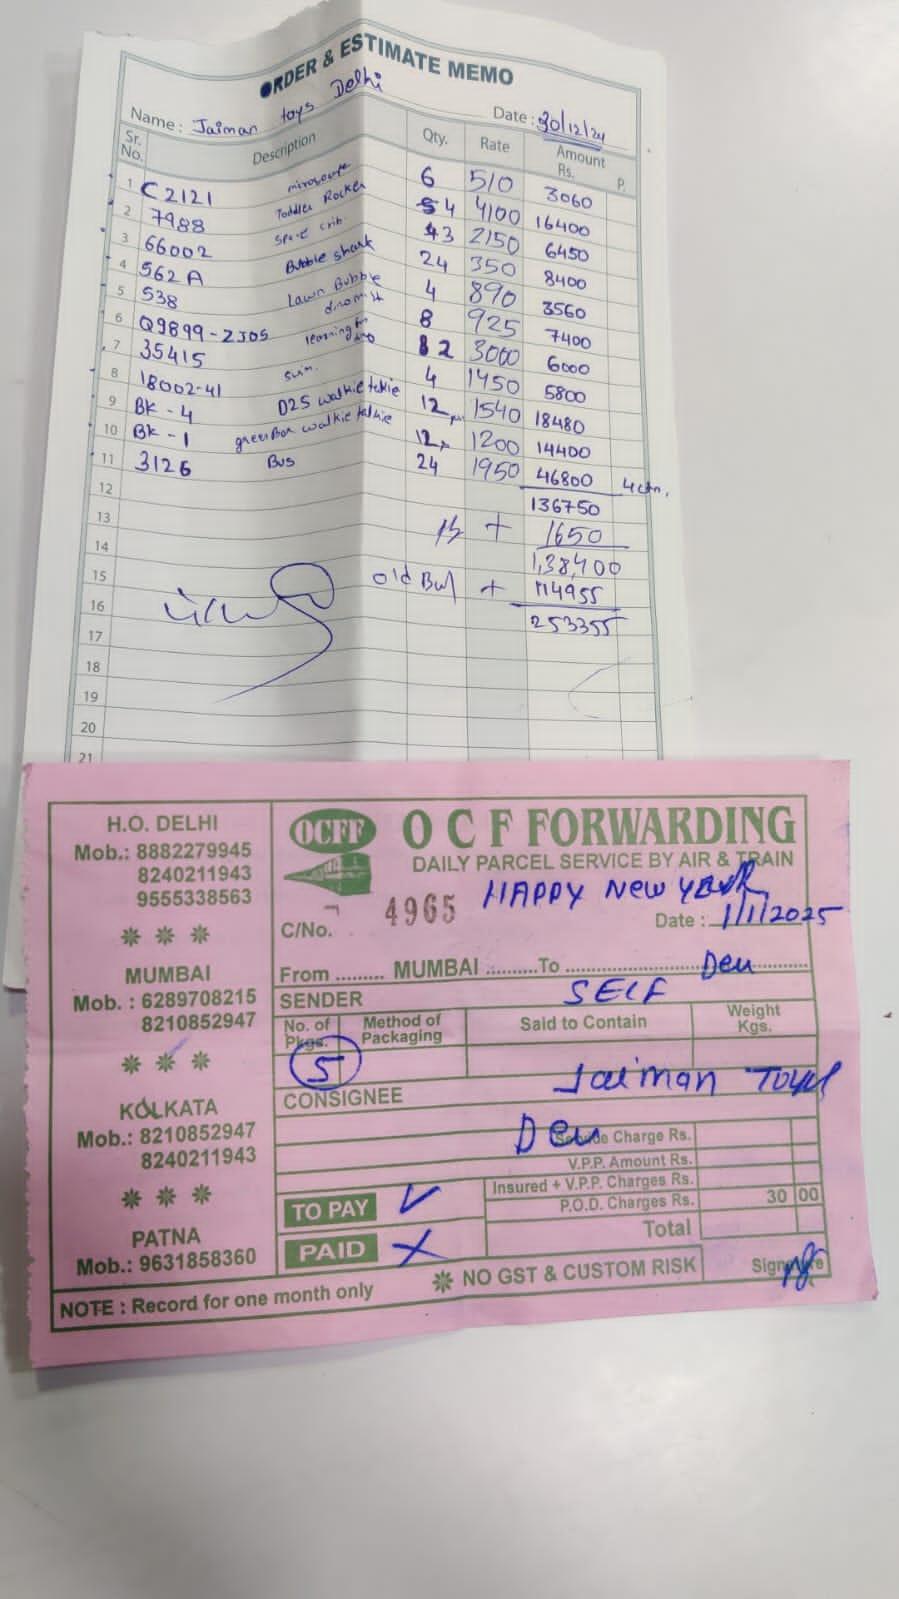 ORDER & ESTIMATE MEMO
Name : Jaiman toys Delhi Date : 30/12/24
Sr. No. Description Qty. Rate Amount Rs. P.
1 C2121 microwave 6 510 3060
2 7988 Toddler Rocker 4 4100 16400
3 66002 crib 3 2150 6450
4 562A Bubble shark 24 350 8400
5 538 Lawn Bubble 4 890 3560
6 Q9899-ZJ05 8 925 7400
7 35415 learning 2 3000 6000
8 18002-41 4 1450 5800
9 BK-4 D25 walkie talkie 12 1540 18480
10 BK-1 green Box walkie talkie 12 1200 14400
11 3126 Bus 24 1950 46800 4 ctn.
12 136750
13 + 1650
14 1,38,400
15 old Bal + 114955
16 253355
17
18
19
20
21
H.O. DELHI
Mob.: 8882279945
8240211943
9555338563
MUMBAI
Mob. : 6289708215
8210852947
KOLKATA
Mob.: 8210852947
8240211943
PATNA
Mob.: 9631858360
OCFF
O C F FORWARDING
DAILY PARCEL SERVICE BY AIR & TRAIN
HAPPY NEW YEAR
C/No. 4965 Date : 1/1/2025
From ......... MUMBAI ..........To ........................
SENDER SELF
No. of Pkgs. Method of Packaging Said to Contain Weight Kgs.
5
CONSIGNEE Jaiman Toys
Charge Rs.
V.P.P. Amount Rs.
Insured + V.P.P. Charges Rs.
TO PAY ✓ P.O.D. Charges Rs. 30 00
PAID X Total
NOTE : Record for one month only NO GST & CUSTOM RISK Signature